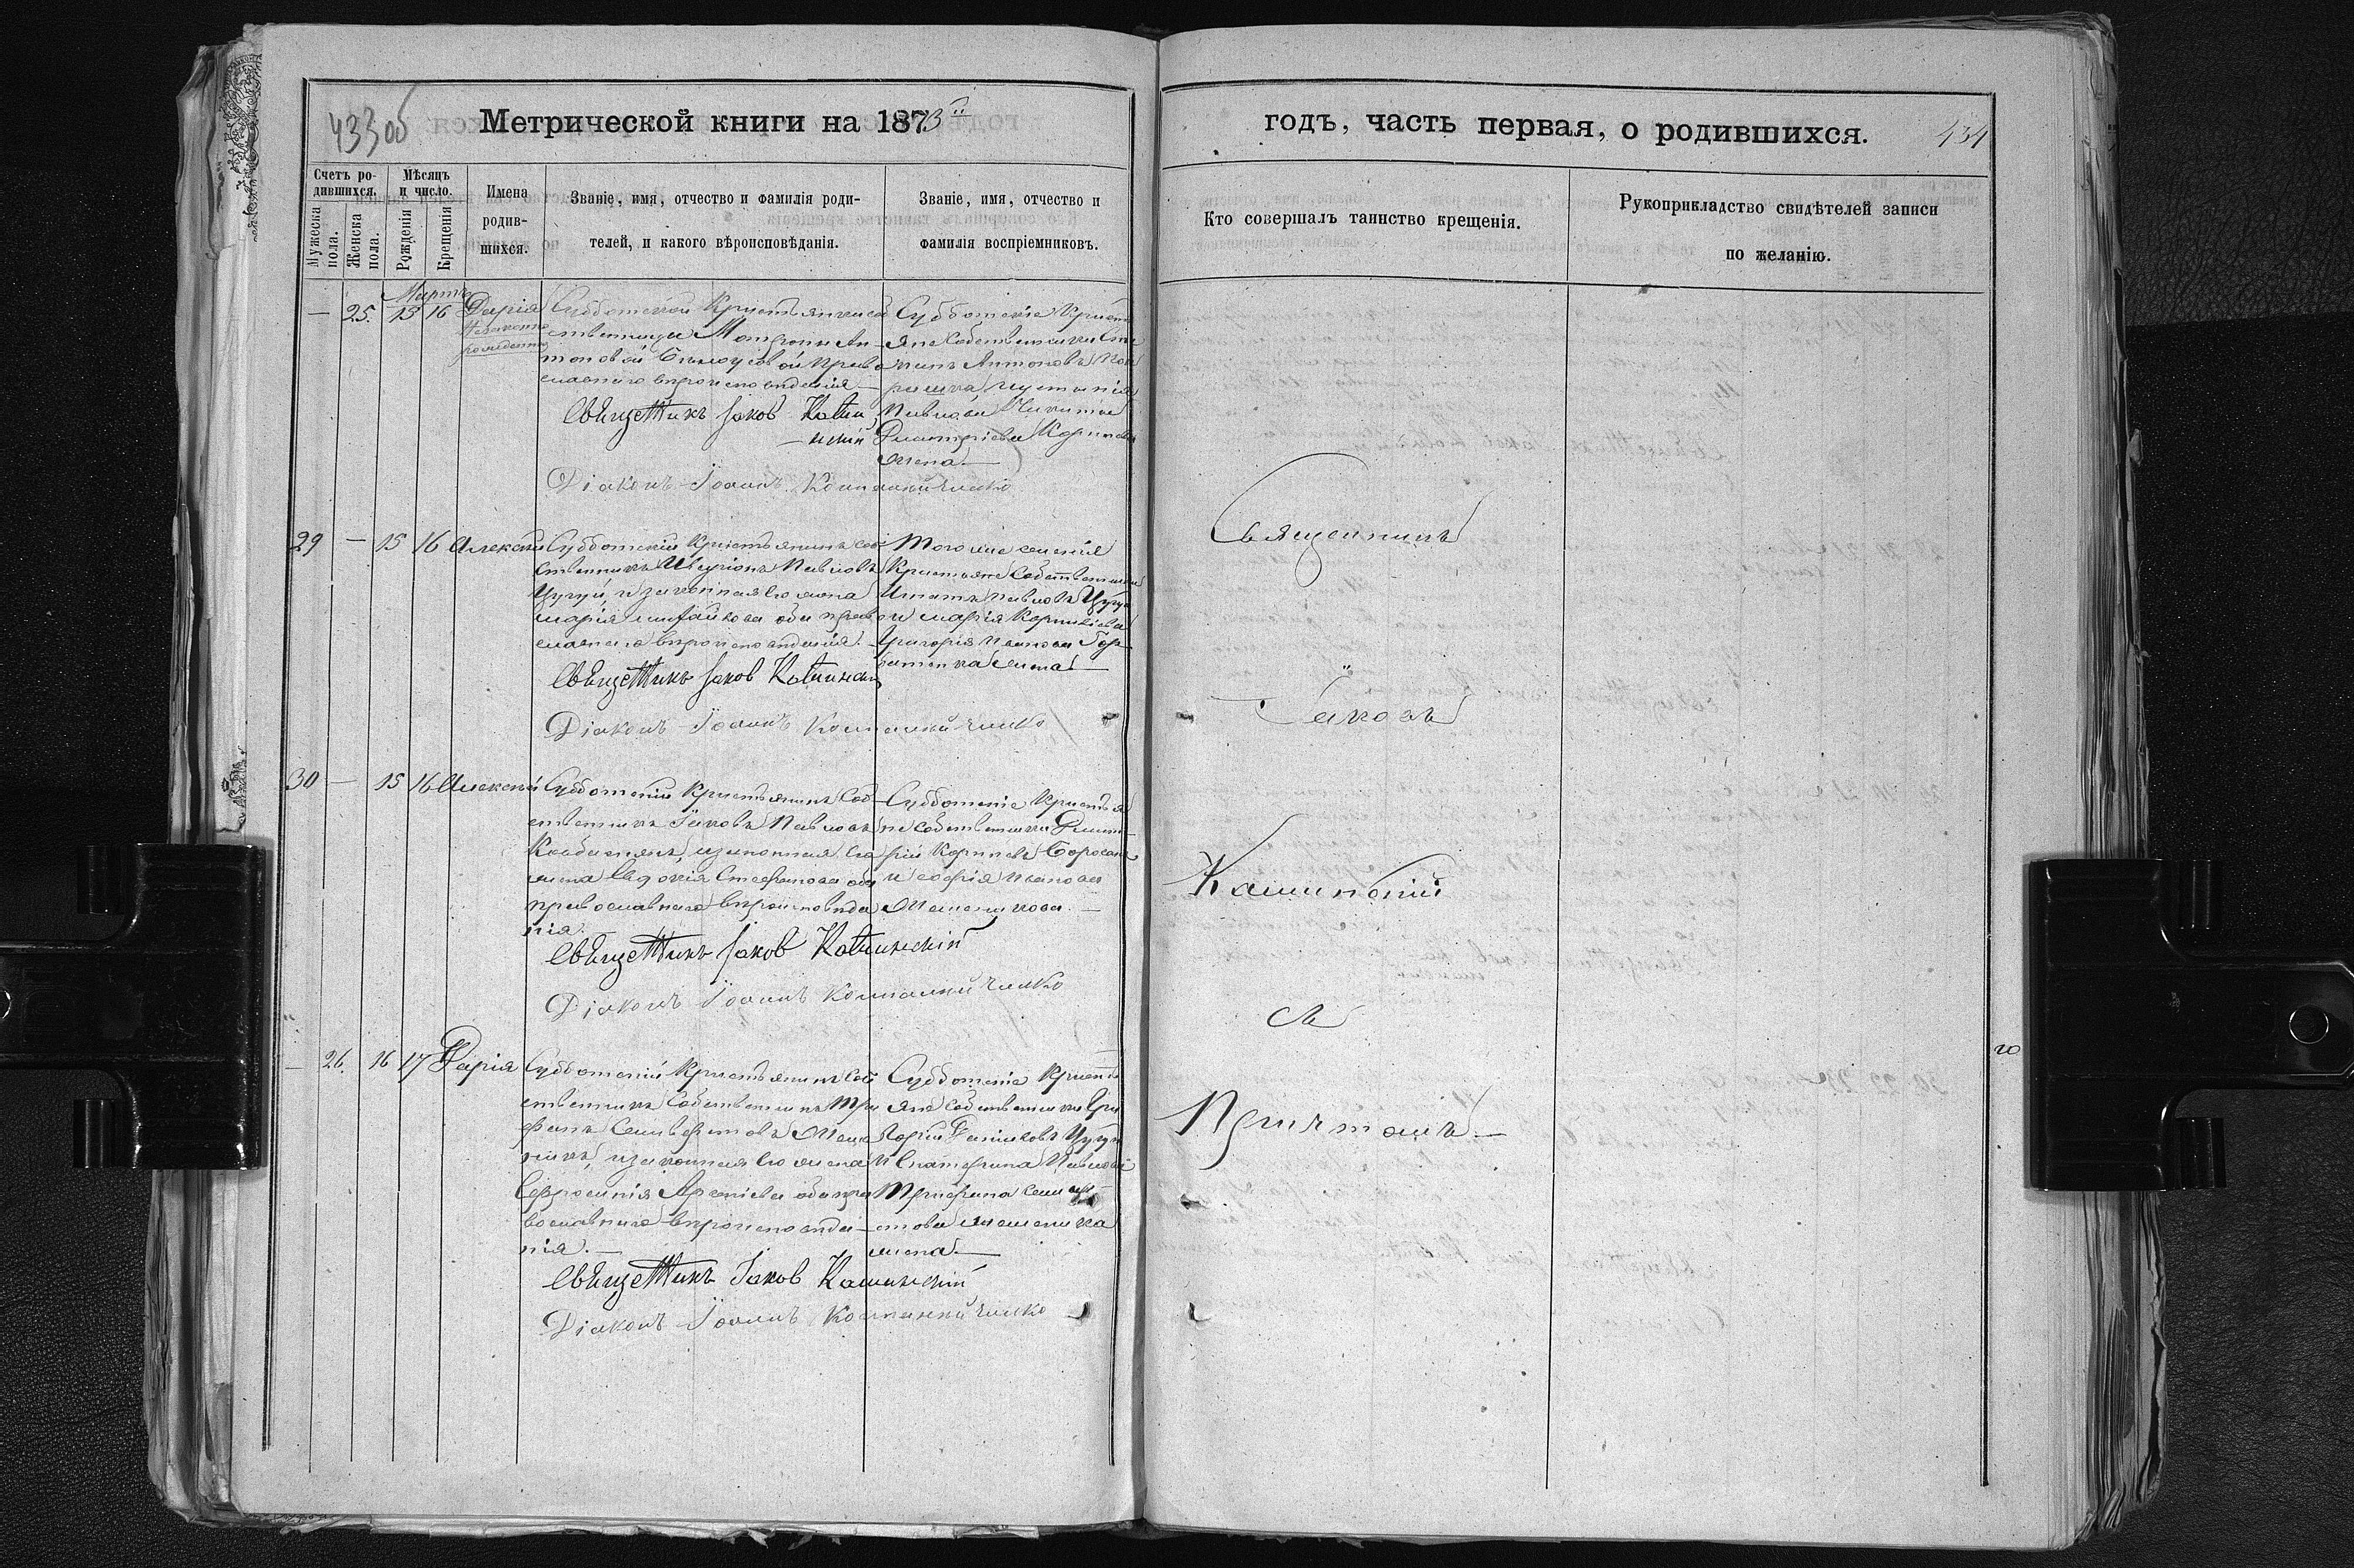 433 об
Метрической книги на 1873й
годъ, часть первая, о родившихся.
434
Счетъ ро-
дившихся.
Мужеска
пола.
Женска
пола.
Мѣсяцъ
и число.
Рожденія
Крещенія
Имена
родив-
шихся.
Званіе, имя, отчество и фамилія роди-
телей, и какого вѣроисповѣданія.
Званіе, имя, отчество и
фамилія воспріемниковъ.
Кто совершалъ таинство крещенія.
Рукоприкладство свидѣтелей записи
по желанію.
Мартъ
— 25. 15 16 Дарія
незаконно
рожденна
Субботской Крестьянки соб
ственницы Матроны Ан-
тоновой Бѣлоусовой право
славнаго вѣроисповѣданія. —
Субботскіе Крестья
яне Собственники
Антоновъ
Павлова
Дмитріева
жена —
Священникъ Іаковъ Каши
нскій
Діаконъ Іоаннъ Компанійченко
29 — 15 16 Алексѣй
Субботскій Крестьянинъ соб
ственникъ Павловъ
Цугуй, и законная его жена
Марія Михайлова оба право
славнаго вѣроисповѣданія. —
Того же селенія
Крестьяне Собственники
Игнатъ Павловъ Цугуй
и Марія Корниліева
Григорія Иванова Гор
батенка жена —
Священникъ Іаковъ Кашинскій
Діаконъ Іоаннъ Компанійченко
30 — 15 16 Алексѣй
Субботскій Крестьянинъ Соб
ственникъ Іаковъ Павловъ
и законная его
жена Евдокія Стефанова оба
православнаго вѣроисповѣда
нія.
Субботскіе Крестья
не собственники Димит
рій
и Софія Иванова
Священникъ Іаковъ Кашинскій
Діаконъ Іоаннъ Компанійченко
— 26. 16 17 Дарія
Субботскій Крестьянинъ Соб
ственникъ Собственникъ Три
фанъ Сильвестровъ
и законная его жена
Евфросинія Арсеніева оба пра
вославнаго вѣроисповѣда-
нія. —
Субботскіе Крестья
яне собственники Гри
горій Даниловъ Цугуй
и Екатерина Павлова
Трифана
жена —
Священникъ Іаковъ Кашинскій
Діаконъ Іоаннъ Компанійченко
Священникъ
Іаковъ
Кашинскій
съ
Причтомъ —